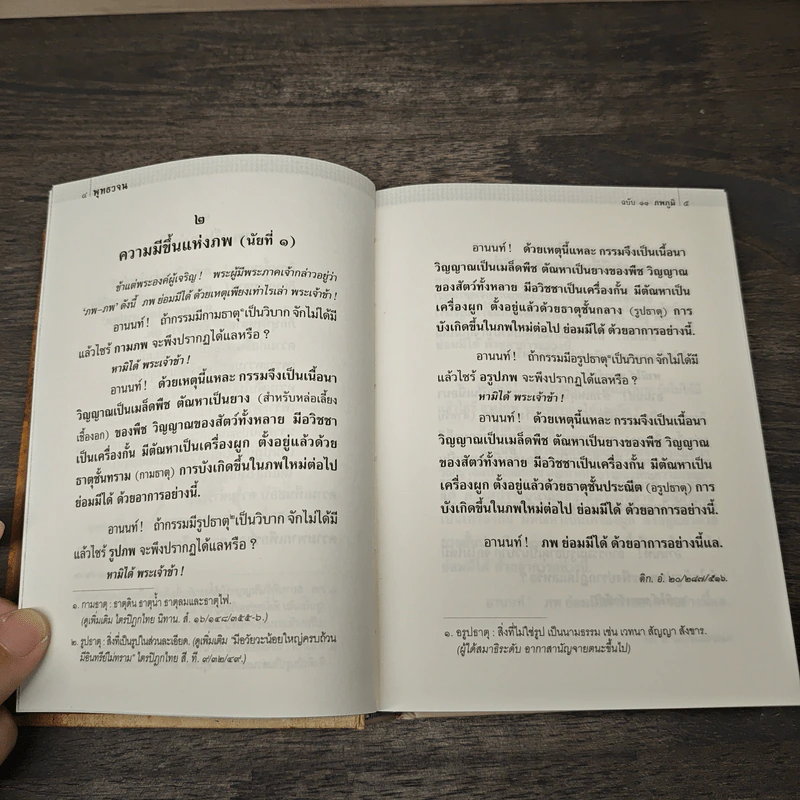 ๔ พุทธวจน
๒
ความมีขึ้นแห่งภพ (นัยที่ ๑)
ข้าแต่พระองค์ผู้เจริญ ! พระผู้มีพระภาคเจ้ากล่าวอยู่ว่า
'ภพ–ภพ' ดังนี้ ภพ ย่อมมีได้ ด้วยเหตุเพียงเท่าไรเล่า พระเจ้าข้า !
อานนท์ ! ถ้ากรรมมีกามธาตุ๑เป็นวิบาก จักไม่ได้มี
แล้วไซร้ กามภพ จะพึงปรากฏได้แลหรือ ?
หามิได้ พระเจ้าข้า !
อานนท์ ! ด้วยเหตุนี้แหละ กรรมจึงเป็นเนื้อนา
วิญญาณเป็นเมล็ดพืช ตัณหาเป็นยาง (สำหรับหล่อเลี้ยง
เชื้องอก) ของพืช วิญญาณของสัตว์ทั้งหลาย มีอวิชชา
เป็นเครื่องกั้น มีตัณหาเป็นเครื่องผูก ตั้งอยู่แล้วด้วย
ธาตุชั้นทราม (กามธาตุ) การบังเกิดขึ้นในภพใหม่ต่อไป
ย่อมมีได้ ด้วยอาการอย่างนี้.
อานนท์ ! ถ้ากรรมมีรูปธาตุ๒เป็นวิบาก จักไม่ได้มี
แล้วไซร้ รูปภพ จะพึงปรากฏได้แลหรือ ?
หามิได้ พระเจ้าข้า !
๑. กามธาตุ : ธาตุดิน ธาตุน้ำ ธาตุลมและธาตุไฟ.
(ดูเพิ่มเติม ไตรปิฎกไทย นิทาน. สํ. ๑๖/๑๔๘/๓๕๕-๖.)
๒. รูปธาตุ : สิ่งที่เป็นรูปในส่วนละเอียด. (ดูเพิ่มเติม "มีอวัยวะน้อยใหญ่ครบถ้วน
มีอินทรีย์ไม่ทราม" ไตรปิฎกไทย สี. ที. ๙/๓๒/๔๙.)
ฉบับ ๑๑ ภพภูมิ ๕
อานนท์ ! ด้วยเหตุนี้แหละ กรรมจึงเป็นเนื้อนา
วิญญาณเป็นเมล็ดพืช ตัณหาเป็นยางของพืช วิญญาณ
ของสัตว์ทั้งหลาย มีอวิชชาเป็นเครื่องกั้น มีตัณหาเป็น
เครื่องผูก ตั้งอยู่แล้วด้วยธาตุชั้นกลาง (รูปธาตุ) การ
บังเกิดขึ้นในภพใหม่ต่อไป ย่อมมีได้ ด้วยอาการอย่างนี้.
อานนท์ ! ถ้ากรรมมีอรูปธาตุ๑เป็นวิบาก จักไม่ได้มี
แล้วไซร้ อรูปภพ จะพึงปรากฏได้แลหรือ ?
หามิได้ พระเจ้าข้า !
อานนท์ ! ด้วยเหตุนี้แหละ กรรมจึงเป็นเนื้อนา
วิญญาณเป็นเมล็ดพืช ตัณหาเป็นยางของพืช วิญญาณ
ของสัตว์ทั้งหลาย มีอวิชชาเป็นเครื่องกั้น มีตัณหาเป็น
เครื่องผูก ตั้งอยู่แล้วด้วยธาตุชั้นประณีต (อรูปธาตุ) การ
บังเกิดขึ้นในภพใหม่ต่อไป ย่อมมีได้ ด้วยอาการอย่างนี้.
อานนท์ ! ภพ ย่อมมีได้ ด้วยอาการอย่างนี้แล.
ติก. อํ. ๒๐/๒๘๗/๕๑๖.
๑. อรูปธาตุ : สิ่งที่ไม่ใช่รูป เป็นนามธรรม เช่น เวทนา สัญญา สังขาร.
(ผู้ได้สมาธิระดับ อากาสานัญจายตนะขึ้นไป)